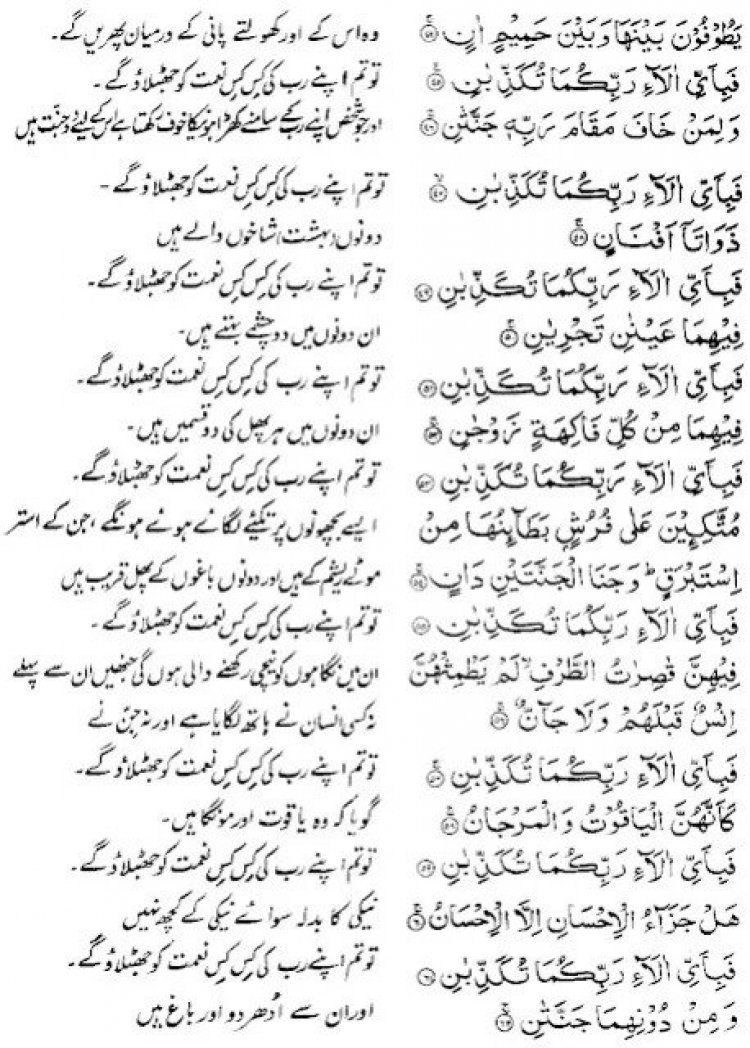 يَطُوْفُوْنَ بَيْنَهَا وَبَيْنَ حَمِيْمٍ اٰنٍ وہ اس کے اور کھولتے پانی کے درمیان پھریں گے۔
فَبِاَيِّ اٰلَآءِ رَبِّكُمَا تُكَذِّبٰنِ تو تم اپنے رب کی کس کس نعمت کو جھٹلاؤ گے۔
وَلِمَنْ خَافَ مَقَامَ رَبِّهٖ جَنَّتٰنِ اور جو شخص اپنے رب کے سامنے کھڑا ہونیکا خوف رکھتا ہے اس کے لیئے دو جنت ہیں
فَبِاَيِّ اٰلَآءِ رَبِّكُمَا تُكَذِّبٰنِ تو تم اپنے رب کی کس کس نعمت کو جھٹلاؤ گے۔
ذَوَاتَآ اَفْنَانٍ دونوں (بہشت) شاخوں والے ہیں
فَبِاَيِّ اٰلَآءِ رَبِّكُمَا تُكَذِّبٰنِ تو تم اپنے رب کی کس کس نعمت کو جھٹلاؤ گے۔
فِيْهِمَا عَيْنٰنِ تَجْرِيٰنِ ان دونوں میں دو چشمے بہتے ہیں۔
فَبِاَيِّ اٰلَآءِ رَبِّكُمَا تُكَذِّبٰنِ تو تم اپنے رب کی کس کس نعمت کو جھٹلاؤ گے۔
فِيْهِمَا مِنْ كُلِّ فَاكِهَةٍ زَوْجٰنِ ان دونوں میں ہر پھل کی دو قسمیں ہیں۔
فَبِاَيِّ اٰلَآءِ رَبِّكُمَا تُكَذِّبٰنِ تو تم اپنے رب کی کس کس نعمت کو جھٹلاؤ گے۔
مُتَّكِـِٕيْنَ عَلٰى فُرُشٍۭ بَطَآىِٕنُهَا مِنْ ایسے بچھونوں پر تکیئے لگائے ہوئے ہونگے، جن کے استر
اِسْتَبْرَقٍ ؕ وَجَنَا الْجَنَّتَيْنِ دَانٍ موٹے ریشم کے ہیں اور دونوں باغوں کے پھل قریب ہیں
فَبِاَيِّ اٰلَآءِ رَبِّكُمَا تُكَذِّبٰنِ تو تم اپنے رب کی کس کس نعمت کو جھٹلاؤ گے۔
فِيْهِنَّ قٰصِرٰتُ الطَّرْفِ لَمْ يَطْمِثْهُنَّ ان میں نگاہوں کو نیچی رکھنے والی ہوں گی جنھیں ان سے پہلے
اِنْسٌ قَبْلَهُمْ وَلَا جَآنٌّ نہ کسی انسان نے ہاتھ لگایا ہے اور نہ جن نے
فَبِاَيِّ اٰلَآءِ رَبِّكُمَا تُكَذِّبٰنِ تو تم اپنے رب کی کس کس نعمت کو جھٹلاؤ گے۔
كَاَنَّهُنَّ الْيَاقُوْتُ وَالْمَرْجَانُ گویا کہ وہ یاقوت اور مونگا ہیں۔
فَبِاَيِّ اٰلَآءِ رَبِّكُمَا تُكَذِّبٰنِ تو تم اپنے رب کی کس کس نعمت کو جھٹلاؤ گے۔
هَلْ جَزَآءُ الْاِحْسَانِ اِلَّا الْاِحْسَانُ نیکی کا بدلہ سوائے نیکی کے کچھ نہیں
فَبِاَيِّ اٰلَآءِ رَبِّكُمَا تُكَذِّبٰنِ تو تم اپنے رب کی کس کس نعمت کو جھٹلاؤ گے۔
وَمِنْ دُوْنِهِمَا جَنَّتٰنِ اور ان سے اُدھر دو اور باغ ہیں